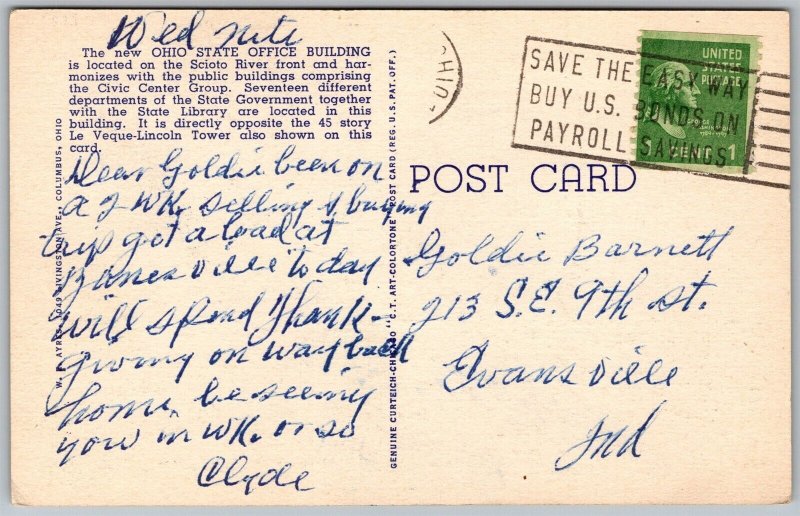 Wed nite
The new OHIO STATE OFFICE BUILDING
is located on the Scioto River front and har-
monizes with the public buildings comprising
the Civic Center Group. Seventeen different
departments of the State Government together
with the State Library are located in this
building. It is directly opposite the 45 story
Le Veque-Lincoln Tower also shown on this
card.
Dear Goldie been on
a 2 WK. selling & buying
trip get a load at
Zanesville today
will spend Thanks-
giving on way back
home, be seeing
you in WK. or so
Clyde
GENUINE CURTEICH-CHICAGO "C.T. ART-COLORTONE" POST CARD (REG. U.S. PAT. OFF.)
OHIO
SAVE THE EASY WAY
BUY U.S. BONDS ON
PAYROLL SAVINGS
UNITED
STATES
POSTAGE
1
POST CARD
Goldie Barnett
213 S.E. 9th st.
Evansville
Ind